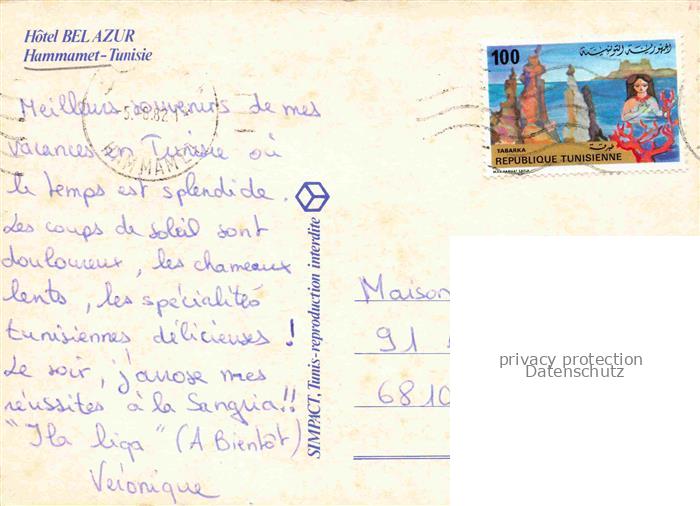 Hôtel BEL AZUR
Hammamet-Tunisie
100
الجمهورية التونسية
TABARKA طبرقة
REPUBLIQUE TUNISIENNE
5.8.82
HAMMAMET
Meilleurs souvenirs de mes
vacances en Tunisie où
le temps est splendide.
Les coups de soleil sont
douloureux, les chameaux
lents, les spécialités
tunisiennes délicieuses !
Le soir, j'arrose mes
réussites à la Sangria!!
"Ila liqa" (A Bientôt)
Véronique
SIMPACT, Tunis-reproduction interdite
Maison
91
6810
privacy protection
Datenschutz